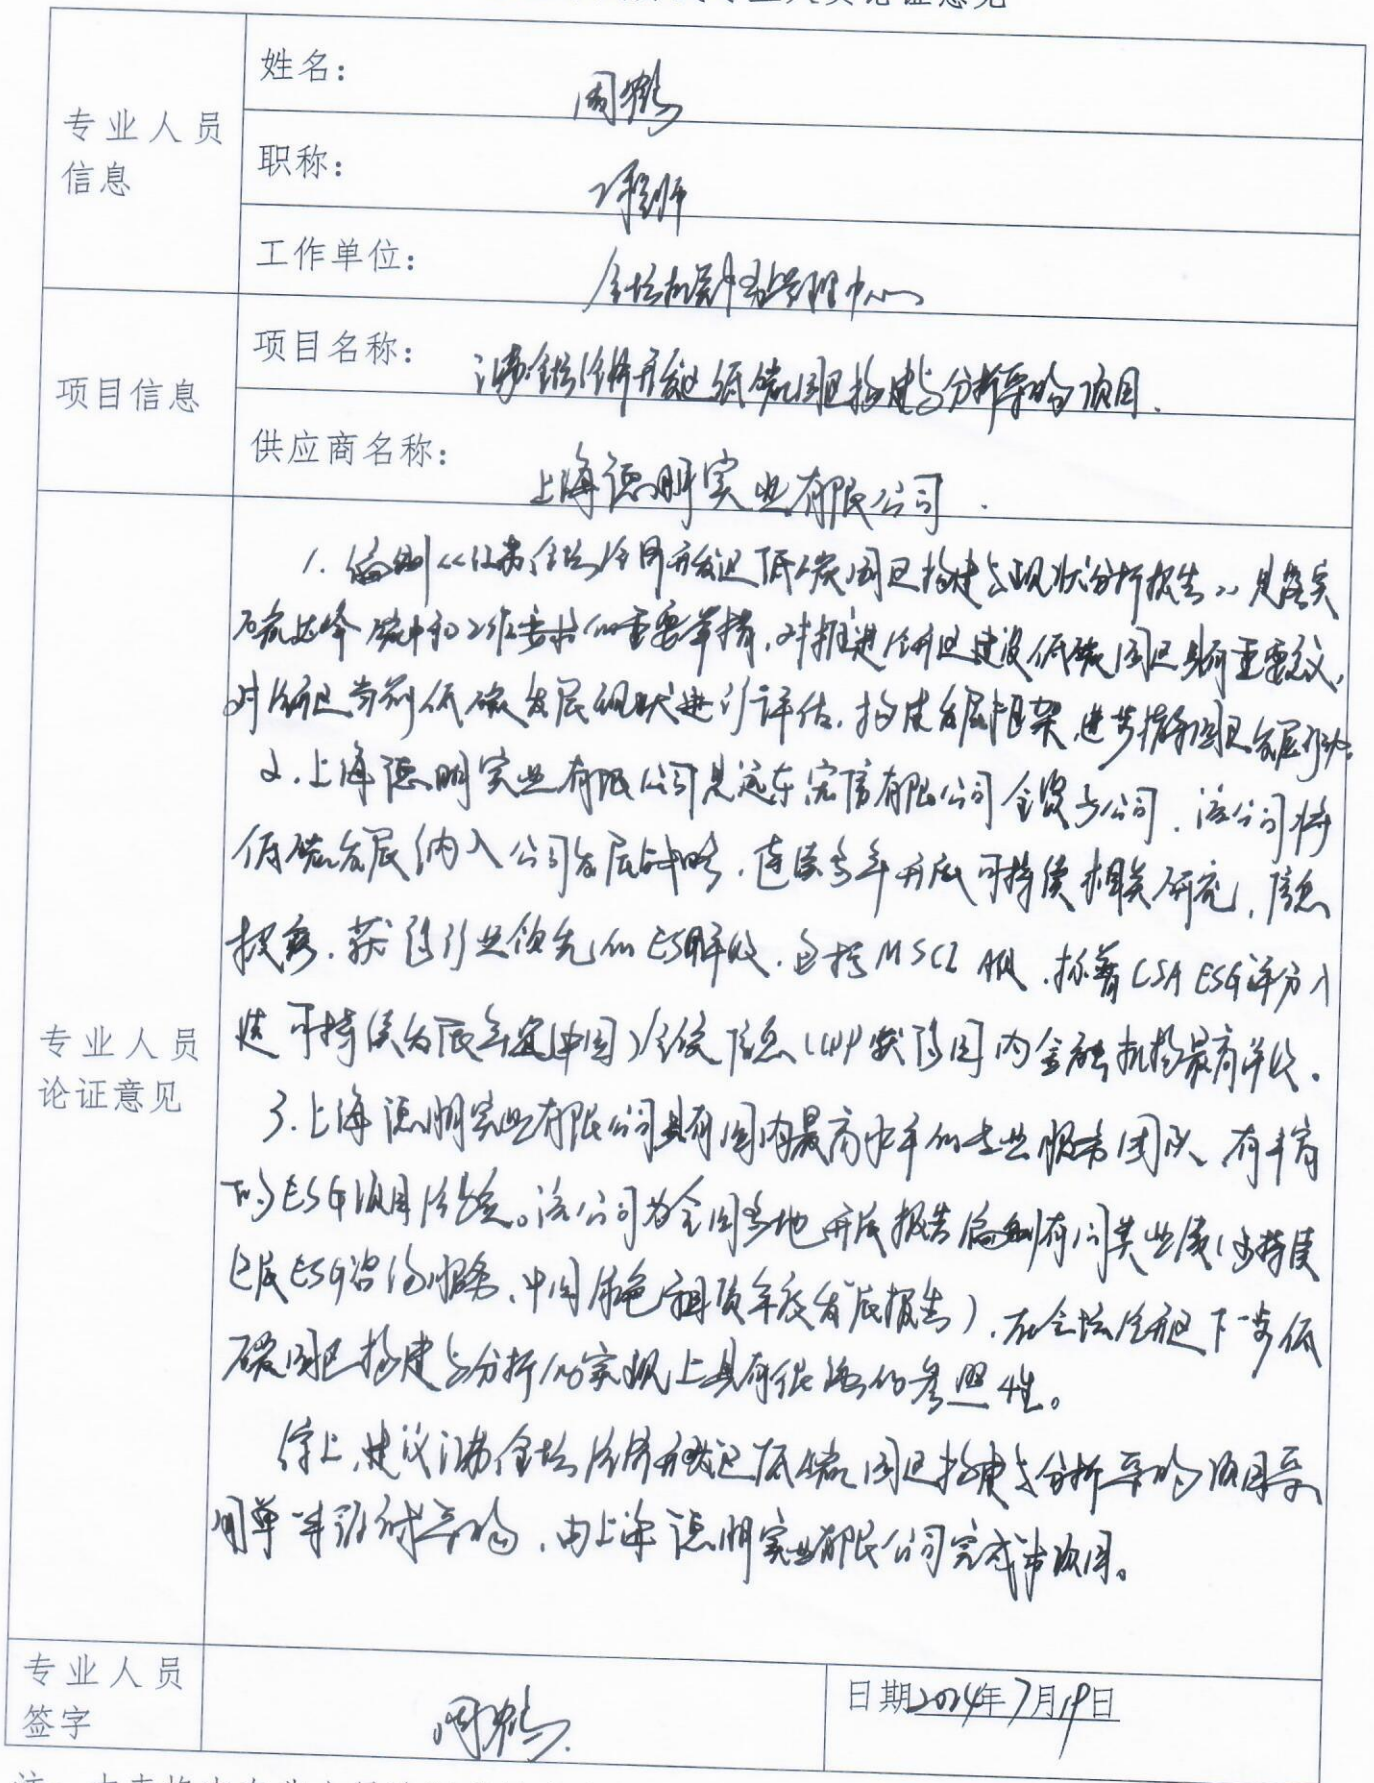 专业人员论证意见
专业人员
信息
姓名：
周鹤
职称：
工程师
工作单位：
金坛 中心
项目信息
项目名称：
江苏金坛经济开发区低碳园区构建与分析采购项目.
供应商名称：
上海德朋实业有限公司.
专业人员
论证意见
1. 编制《江苏金坛经济开发区低碳园区构建与现状分析报告》是落实
碳达峰碳中和工作要求的重要举措,对推进经开区建设低碳园区具有重要意义,
对经开区当前低碳发展现状进行评估,构建发展框架,进一步指导园区发展行动。
2. 上海德朋实业有限公司是远东宏信有限公司全资子公司,该公司将
低碳发展纳入公司发展战略,连续多年开展可持续相关研究,信息
披露,获得行业领先的ESG评级,包括MSCI A级,标普CSA ESG评分入
选可持续发展年鉴(中国)全线信息 获得国内金融机构最高评级。
3. 上海德朋实业有限公司具有国内最高水平的专业服务团队,有丰富
的ESG项目经验。该公司为全国多地开展报告编制有同类业绩(可持续
ESG咨询服务、中国绿色租赁年度发展报告),在金坛经开区下一步低
碳园区构建与分析的实现上具有很强的参照性。
综上,建议江苏金坛经济开发区低碳园区构建与分析采购项目采
用单一来源方式采购,由上海德朋实业有限公司完成本项目。
专业人员
签字
周鹤
日期2024年7月19日